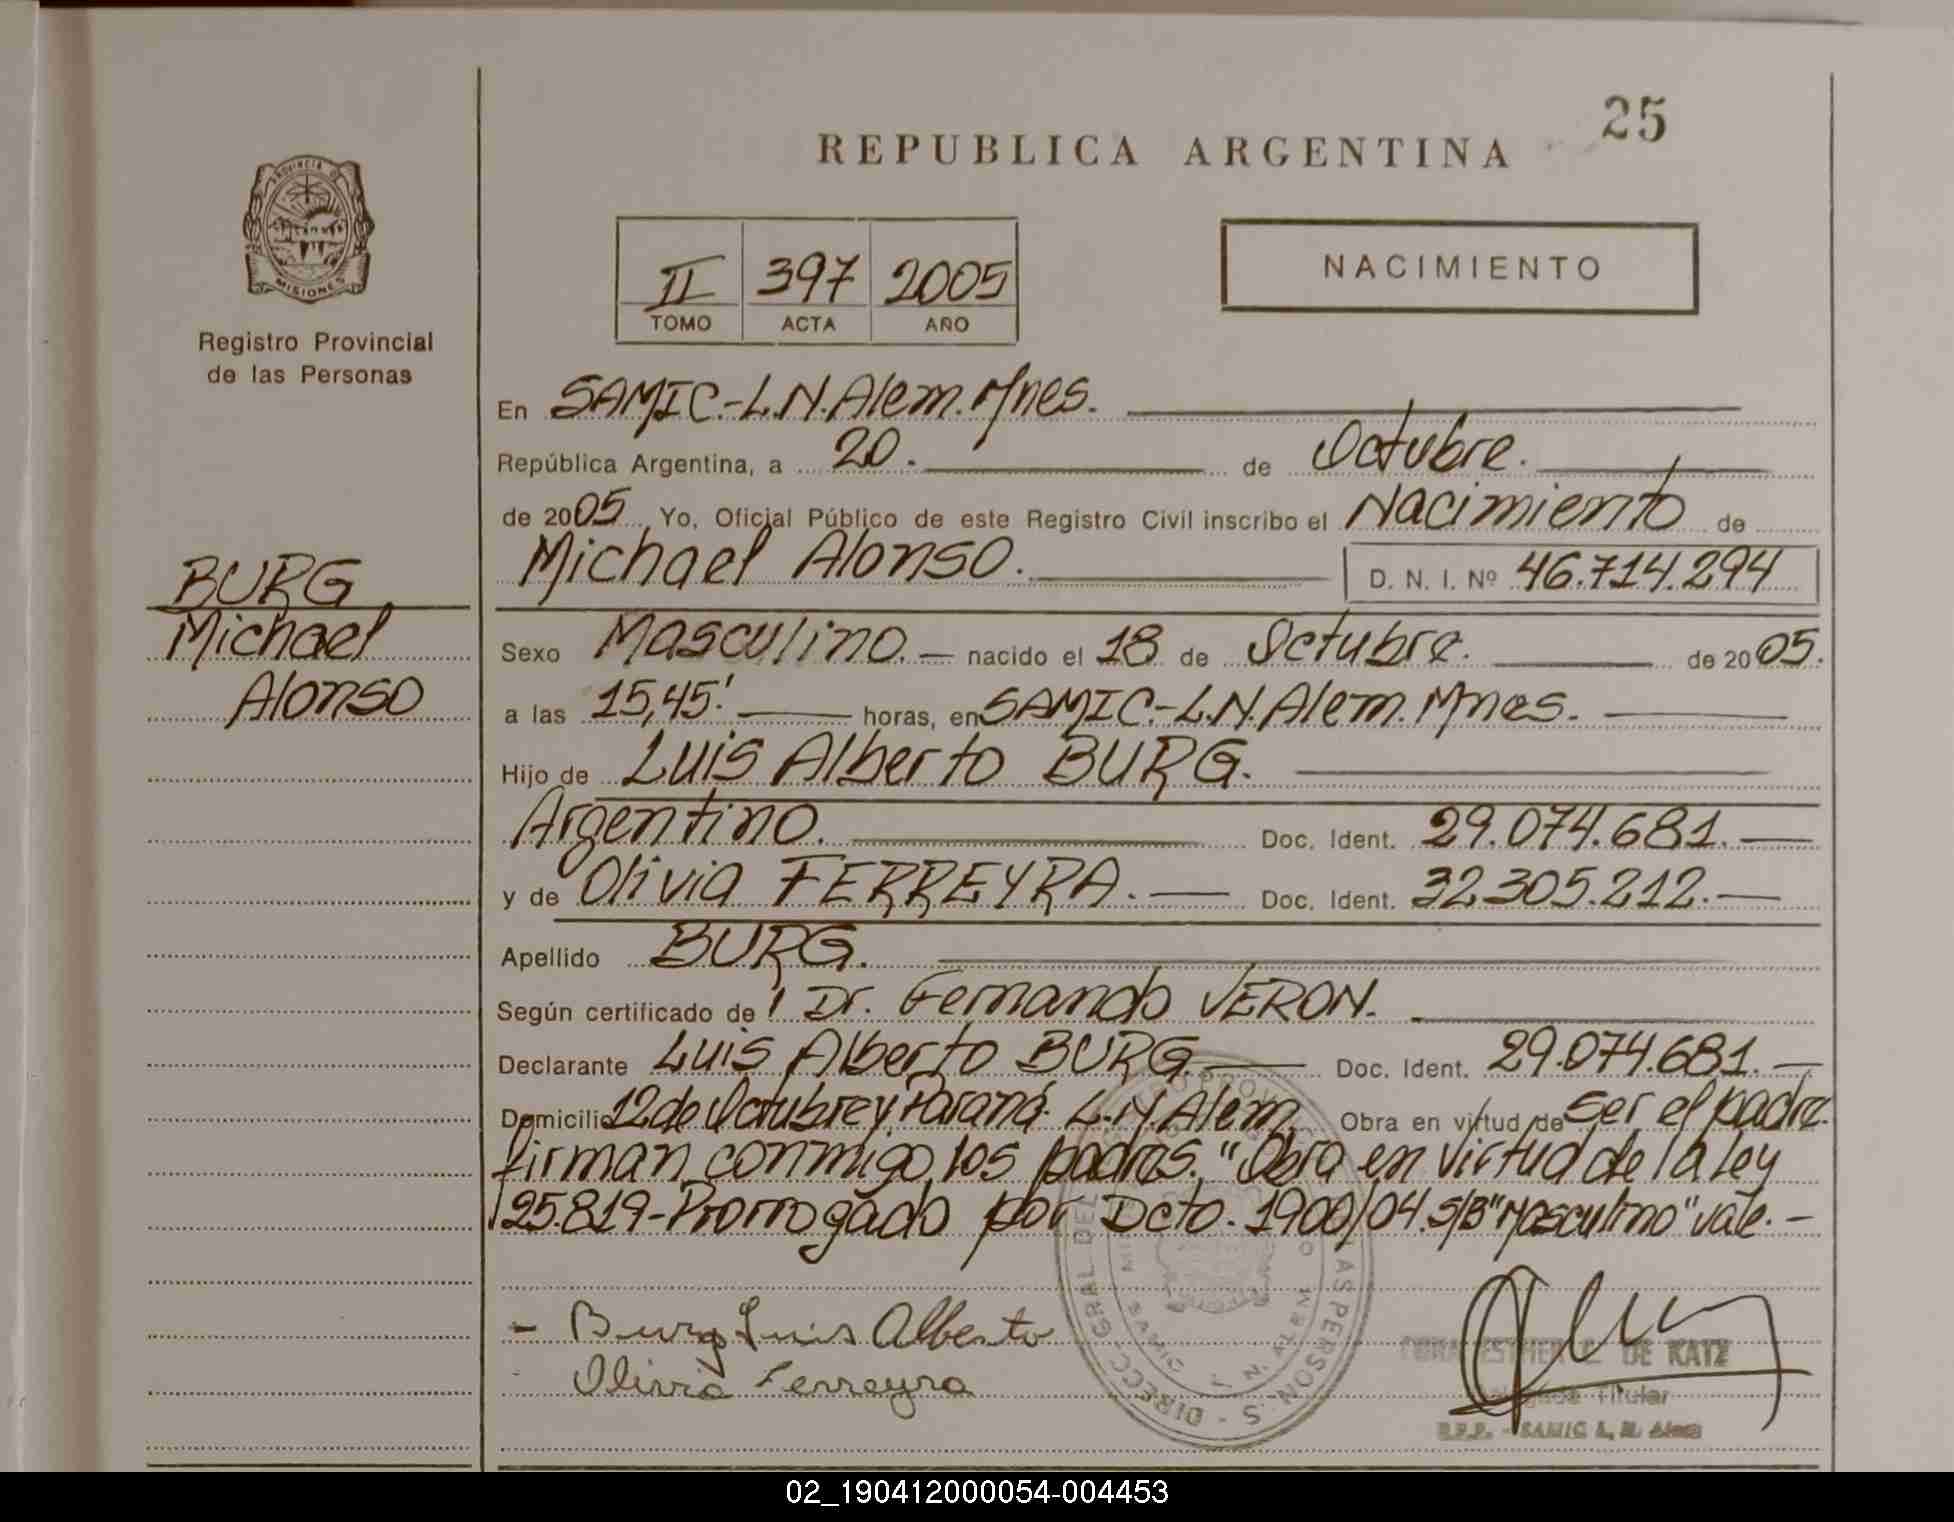 25
REPUBLICA ARGENTINA
PROVINCIA D
MISIONES
Registro Provincial
de las Personas
II 397 2005
TOMO ACTA AÑO
NACIMIENTO
En SAMIC.-L.N.Alem.Mnes.
República Argentina, a 20. de Octubre.
de 2005 Yo, Oficial Público de este Registro Civil inscribo el Nacimiento de
Michael Alonso. D. N. I. Nº 46.714.294
BURG
Michael
Alonso
Sexo Masculino.- nacido el 18 de Octubre. de 2005.
a las 15,45' horas, en SAMIC.-L.N.Alem. Mnes.
Hijo de Luis Alberto BURG.
Argentino. Doc. Ident. 29.074.681.-
y de Olivia FERREYRA.- Doc. Ident. 32.305.212.-
Apellido BURG.
Según certificado de Dr. Fernando VERON.
Declarante Luis Alberto BURG.- Doc. Ident. 29.074.681.-
Domicilio 12 de Octubre y Paraná. L.N.Alem. Obra en virtud de Ser el padre.
firman conmigo los padres. "Obra en virtud de la ley
25.819-Prorrogado por Dcto. 1900/04. S/B "Masculino" vale.-
- Burg Luis Alberto
- Olivia Ferreyra
ESTHER DE KATZ
Titular
R.P.P. - SAMIC L. N. Alem
02_190412000054-004453